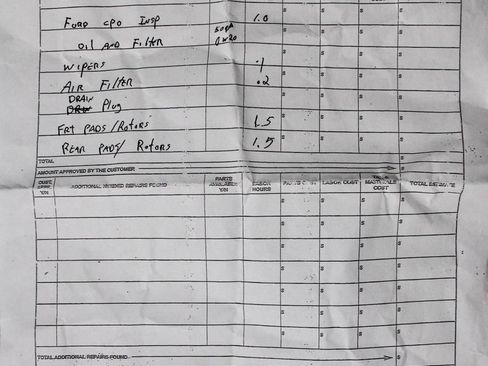 COST
FORD CPO INSP 1.0
OIL AND FILTER 0W20
WIPERS .1
AIR FILTER .2
DRAIN
Plug
FRT PADS/ROTORS 1.5
REAR PADS/ ROTORS 1.5
TOTAL $
AMOUNT APPROVED BY THE CUSTOMER $
CUST APPR Y/N ADDITIONAL NEEDED REPAIRS FOUND PARTS AVAILABLE Y/N LABOR HOURS PARTS COST LABOR COST MATERIALS COST TOTAL ESTIMATE
$ $ $ $
$ $ $ $
$ $ $ $
$ $ $ $
$ $ $ $
$ $ $ $
TOTAL ADDITIONAL REPAIRS FOUND $